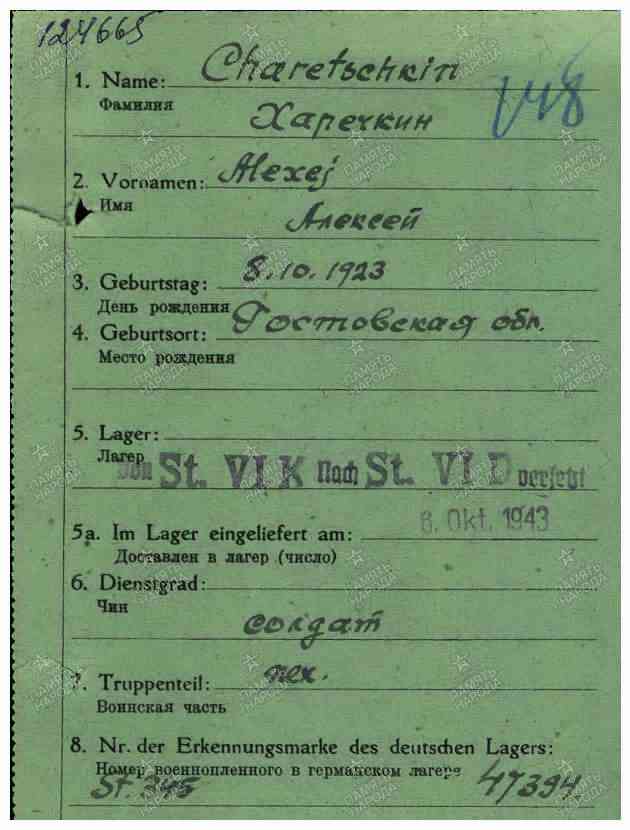 124665
1. Name: Charetschkin
Фамилия
Харечкин
2. Vornamen: Alexej
Имя
Алексей
3. Geburtstag: 8.10.1923
День рождения
4. Geburtsort: Ростовская обл.
Место рождения
5. Lager:
Лагер
von St. VI K Nach St. VI D versetzt
6. Okt. 1943
5a. Im Lager eingeliefert am:
Доставлен в лагер (число)
6. Dienstgrad:
Чин
солдат
7. Truppenteil: пех.
Воинская часть
8. Nr. der Erkennungsmarke des deutschen Lagers:
Номер военнопленного в германском лагере
St. 345 47394.